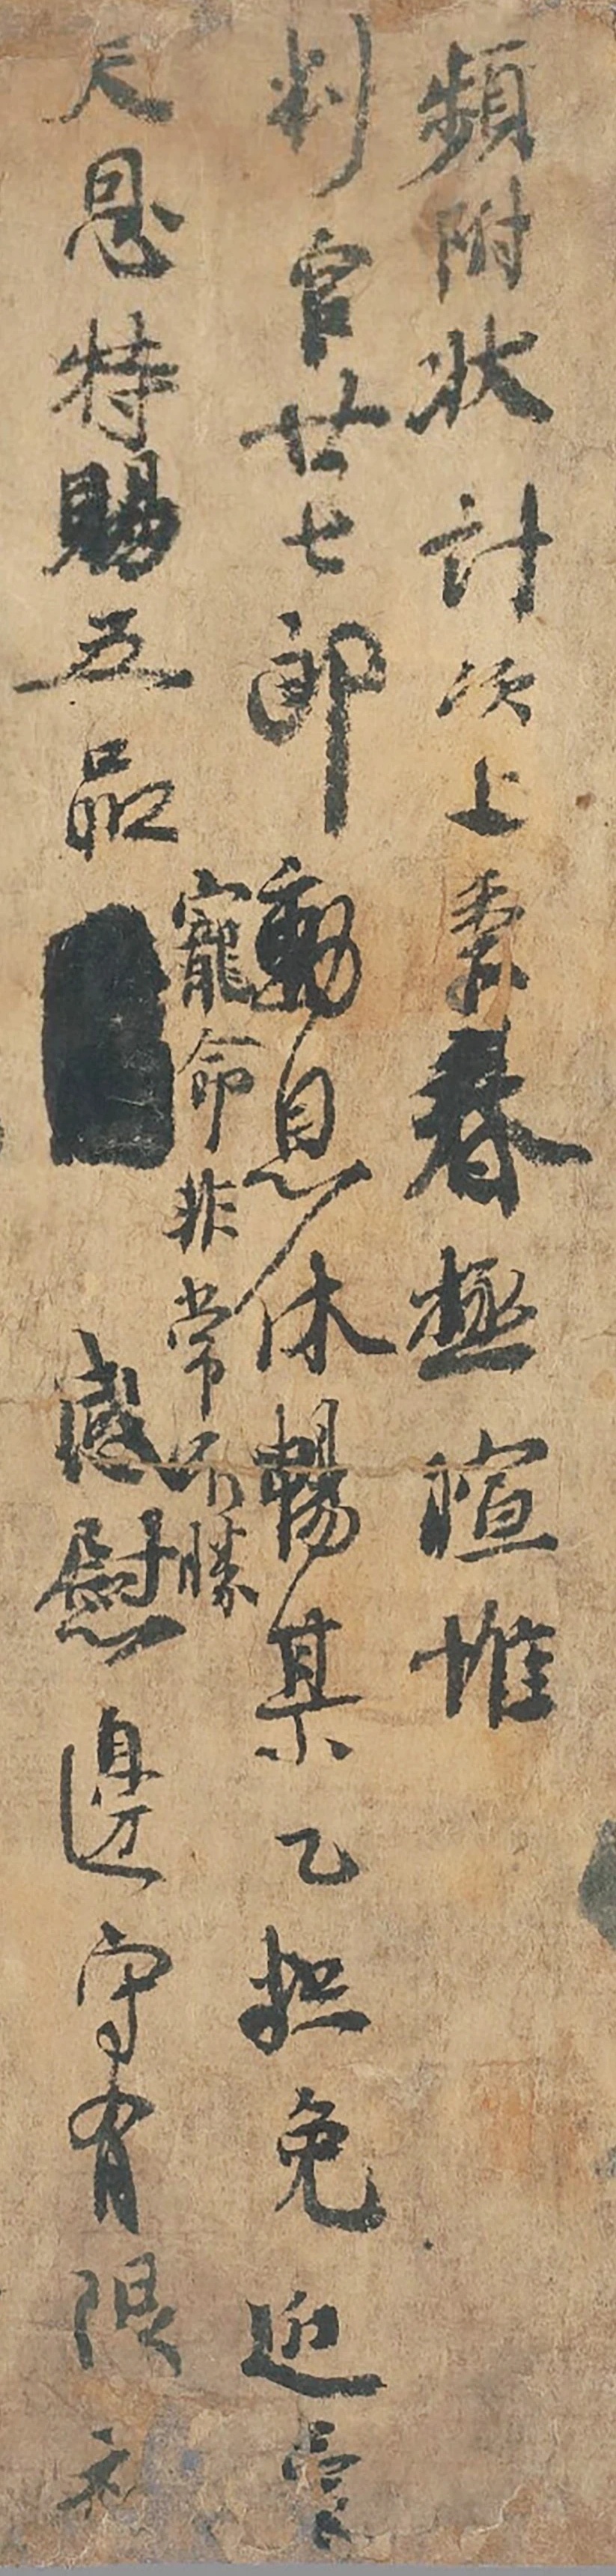 頻附狀計次上書春極暄惟
判官廿七郎動息休暢某乙粗免近蒙
寵命非常不勝
天恩特賜五品感慰邊守有限